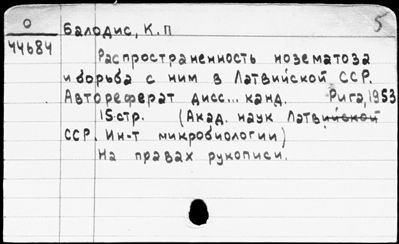 О
44684
5
Балодис, К.П
Распространенность нозематоза
и борьба с ним в Латвийской ССР.
Автореферат дисс... канд. Рига, 1953
15стр. (Акад. наук Латвийской
ССР. Ин-т микробиологии)
На правах рукописи.